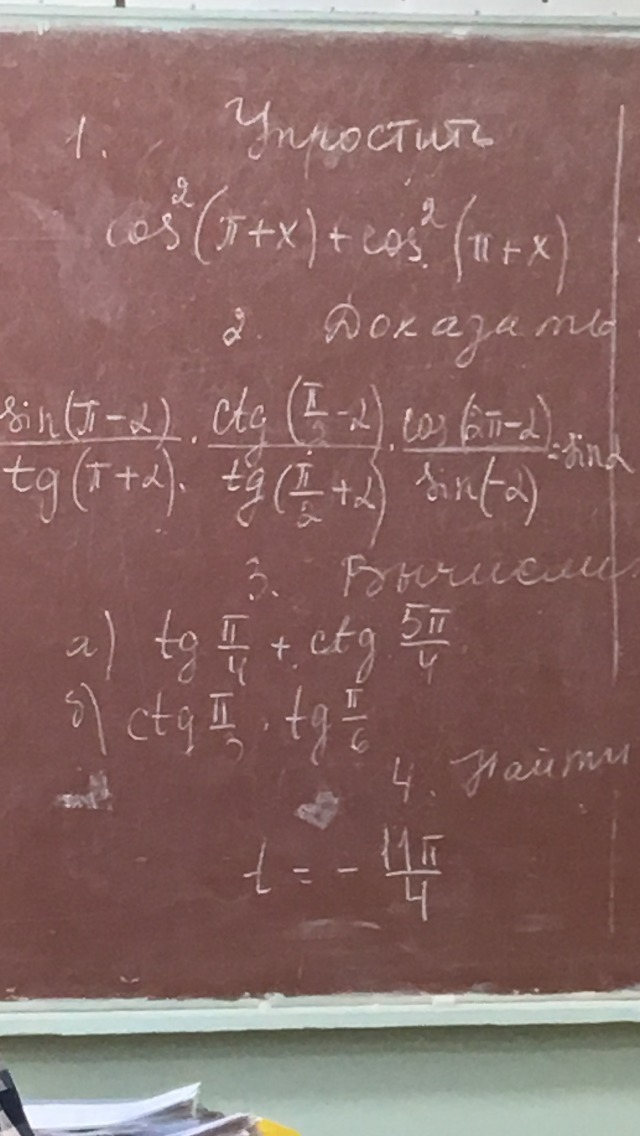 1. Упростить
cos²(π+x)+cos²(π+x)
2. Доказать
sin(π-α)/tg(π+α) · ctg(π/2-α)/tg(π/2+α) · cos(2π-α)/sin(-α) = sinα
3.
а) tg π/4 + ctg 5π/4
б) ctg π/3 · tg π/6
4. Найти
t = - 11π/4